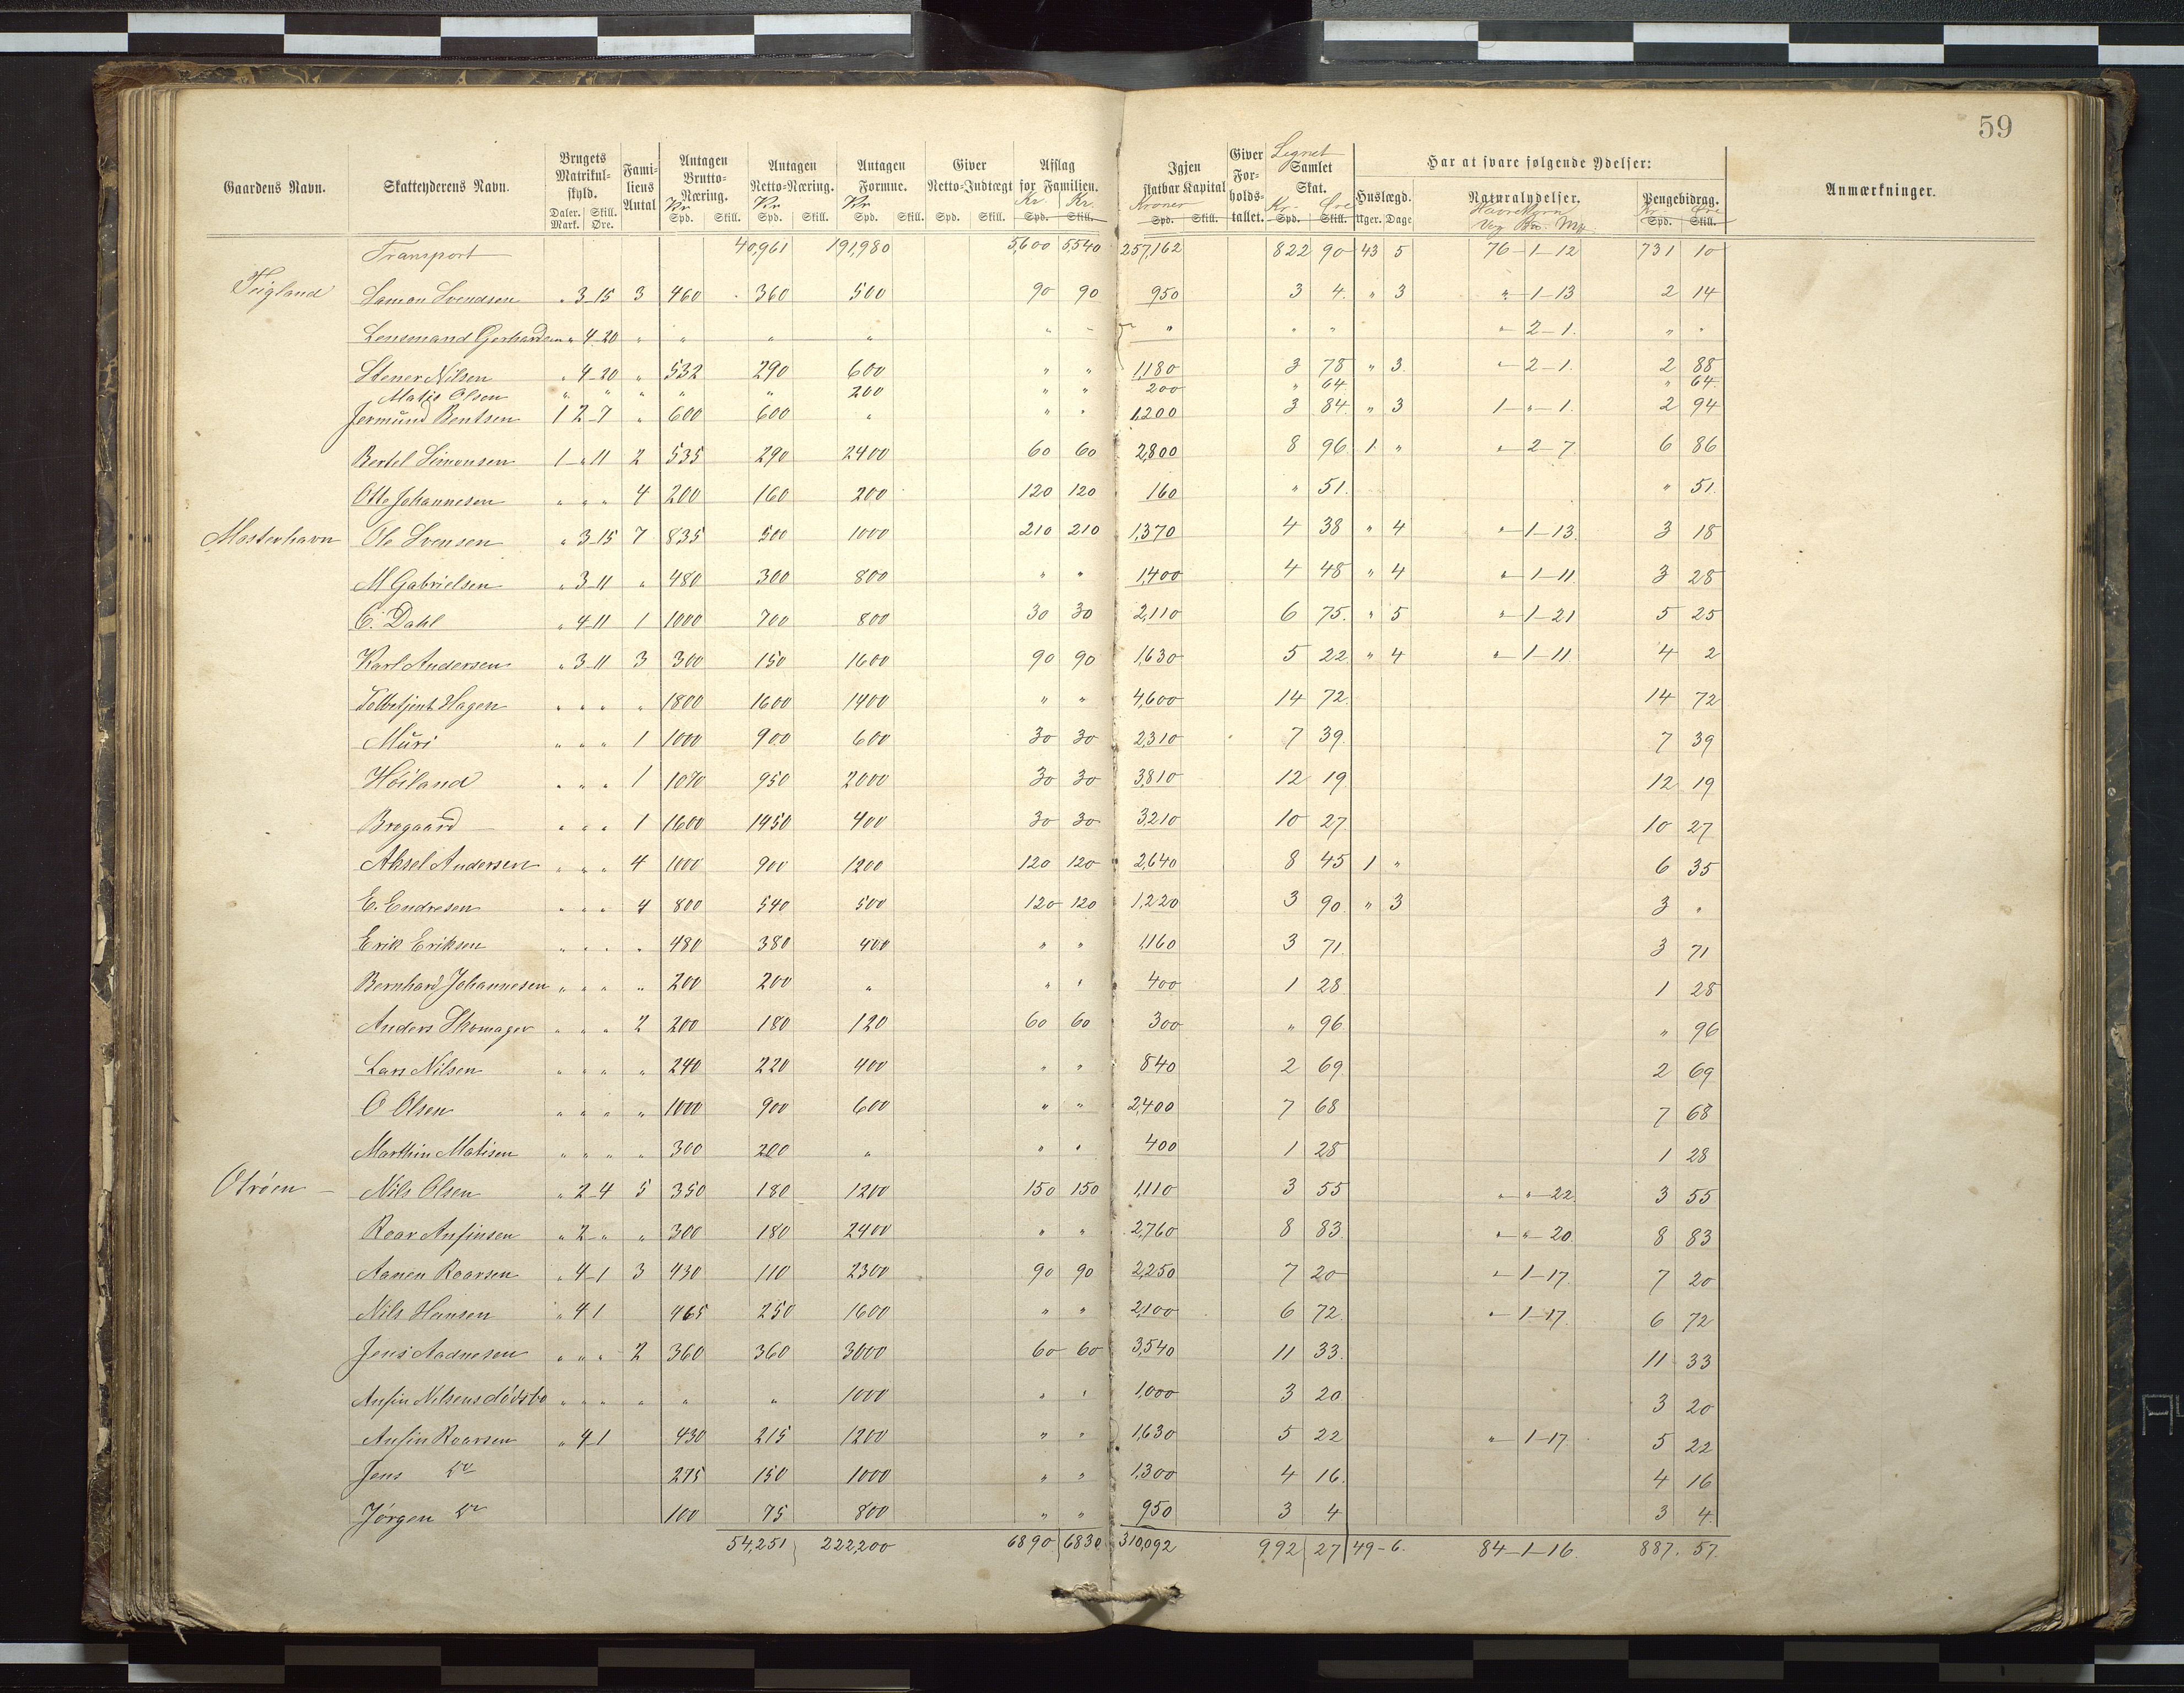 59
Gaardens Navn. Skatteyderens Navn. Brugets Matrikulskyld. Daler. Mark. Skill. Øre. Familiens Antal Antagen Brutto-Næring. Kr Spd. Skill. Antagen Netto-Næring. Kr Spd. Skill. Antagen Formue. Kr Spd. Skill. Giver Netto-Indtægt Spd. Skill. Afslag for Familien. Kr. Kr. Spd. Skill. Igjen skatbar Kapital Kroner Spd. Skill. Giver Forholdstallet. Lignet Samlet Skat. Kr. Øre Spd. Skill. Har at svare følgende Ydelser: Huslægd. Uger. Dage Naturalydelser. Havrekorn Vog Bm. Mk Pengebidrag. Kr. Øre Spd. Skill. Anmærkninger.
Transport 40,961 191,980 5,600 5,540 257,162 822 90 43 5 76-1-12 731 10
Teigland Samon Svendsen " 3 15 3 460 360 500 90 90 950 3 4 " 3 "-1-13 2 14
Lensmand Gerhardsen " 4-20 " " " " " " " " "-2-1. " "
Stener Nilsen " 4-20 " 532 290 600 " " 1,180 3 78 " 3 "-2-1. 2 88
Matis Olsen " " " " " " 200 " " 200 " 64 " 64
Jermund Bentsen 1 2-7 " 600 600 " " " 1,200 3 84 " 3 1-"-1. 2 94
Bertel Simonsen 1-"11 2 535 290 2400 60 60 2,800 8 96 1 " "-2-7 6 86
Otto Johannesen " " " 4 200 160 200 120 120 160 " 51. " 51.
Mosterhavn Ole Svensen " 3-15 7 835 500 1000 210 210 1,370 4 38 " 4 "-1-13. 3 18
M Gabrielsen " 3-11 " 480 300 800 " " 1,400 4 48 " 4 "-1-11 3 28
C. Dahl " 4-11 1 1000 700 800 30 30 2,110 6 75. " 5 "-1-21 5 25
Karl Andersen " 3-11 3 300 150 1600 90 90 1,630 5 22 " 4 "-1-11. 4 2
Toldbetjent Hagen " " " " 1800 1600 1400 " " 4,600 14 72. 14 72
Muri " " " 1 1000 900 600 30 30 2,310 7 39 7 39
Høiland " " " 1 1070 950 2000 30 30 3,810 12 19 12 19
Brogaard " " " 1 1600 1450 400 30 30 3,210 10 27 10 27
Aksel Andersen " " " 4 1000 900 1200 120 120 2,640 8 45 1 " 6 35
E. Endresen " " " 4 800 540 500 120 120 1,220 3 90 " 3 3 "
Erik Eriksen " " " " 480 380 400 " " 1,160 3 71 3 71
Bernhard Johannesen " " " " 200 200 " " " 400 1 28 1 28
Anders Skomager " " " 2 200 180 120 60 60 300 " 96 " 96
Lars Nilsen " " " " 240 220 400 " " 840 2 69 2 69
O Olsen " " " " 1000 900 600 " " 2,400 7 68 7 68
Marthin Matisen " " " " 300 200 " " " 400 1 28 1 28
Otrøen Nils Olsen " 2-4 5 350 180 1200 150 150 1,110 3 55 "-"-22. 3 55
Roar Ansinsen " 2-" " 300 180 2400 " " 2,760 8 83 "-"-20. 8 83
Aanen Roarsen " 4-1 3 430 110 2300 90 90 2,250 7 20 "-1-17. 7 20
Nils Hansen " 4 1 465 250 1600 " " 2,100 6 72 "-1-17 6 72
Jens Aadnesen " " " 2 360 360 3000 60 60 3,540 11 33. 11 33
Ansin Nilsens dødsbo " " " " " " 1000 " " 1,000 3 20 3 20
Ansin Roarsen " 4 1 430 215 1200 " " 1,630 5 22 "-1-17. 5 22
Jens Do 275 150 1000 " " 1,300 4 16. 4 16
Jørgen Do 100 75 800 " " 950 3 4 3 4
54,251 222,200 6890 6830 310,092 992 27 49-6. 84-1-16. 887. 57.